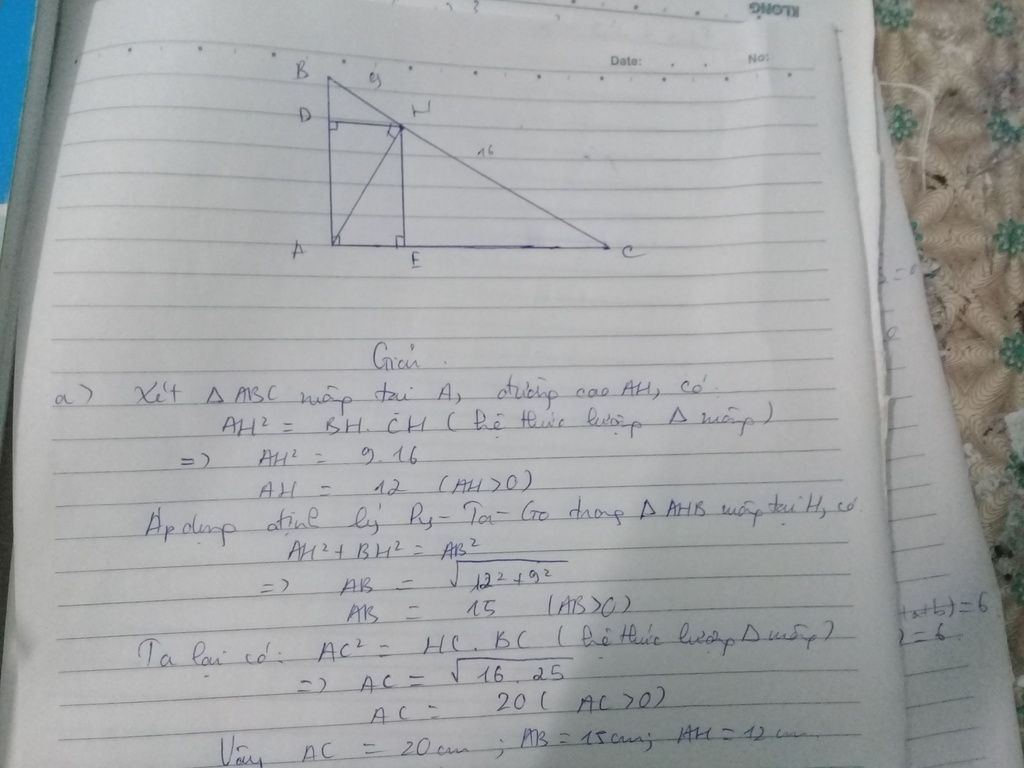 KLONG
Date:
No:
B
9
D
H
16
A
E
C
Giải.
a) Xét Δ ABC vuông tại A, đường cao AH, có:
AH² = BH. CH ( hệ thức lượng Δ vuông)
=> AH² = 9.16
AH = 12 (AH>0)
Áp dụng định lý Py-Ta-Go trong Δ AHB vuông tại H, có
AH² + BH² = AB²
=> AB = √12² + 9²
AB = 15 (AB>0)
Ta lại có: AC² = HC. BC ( hệ thức lượng Δ vuông)
=> AC = √16.25
AC = 20 ( AC>0)
Vậy AC = 20cm ; AB = 15cm; AH = 12cm
+b) = 6
= 6